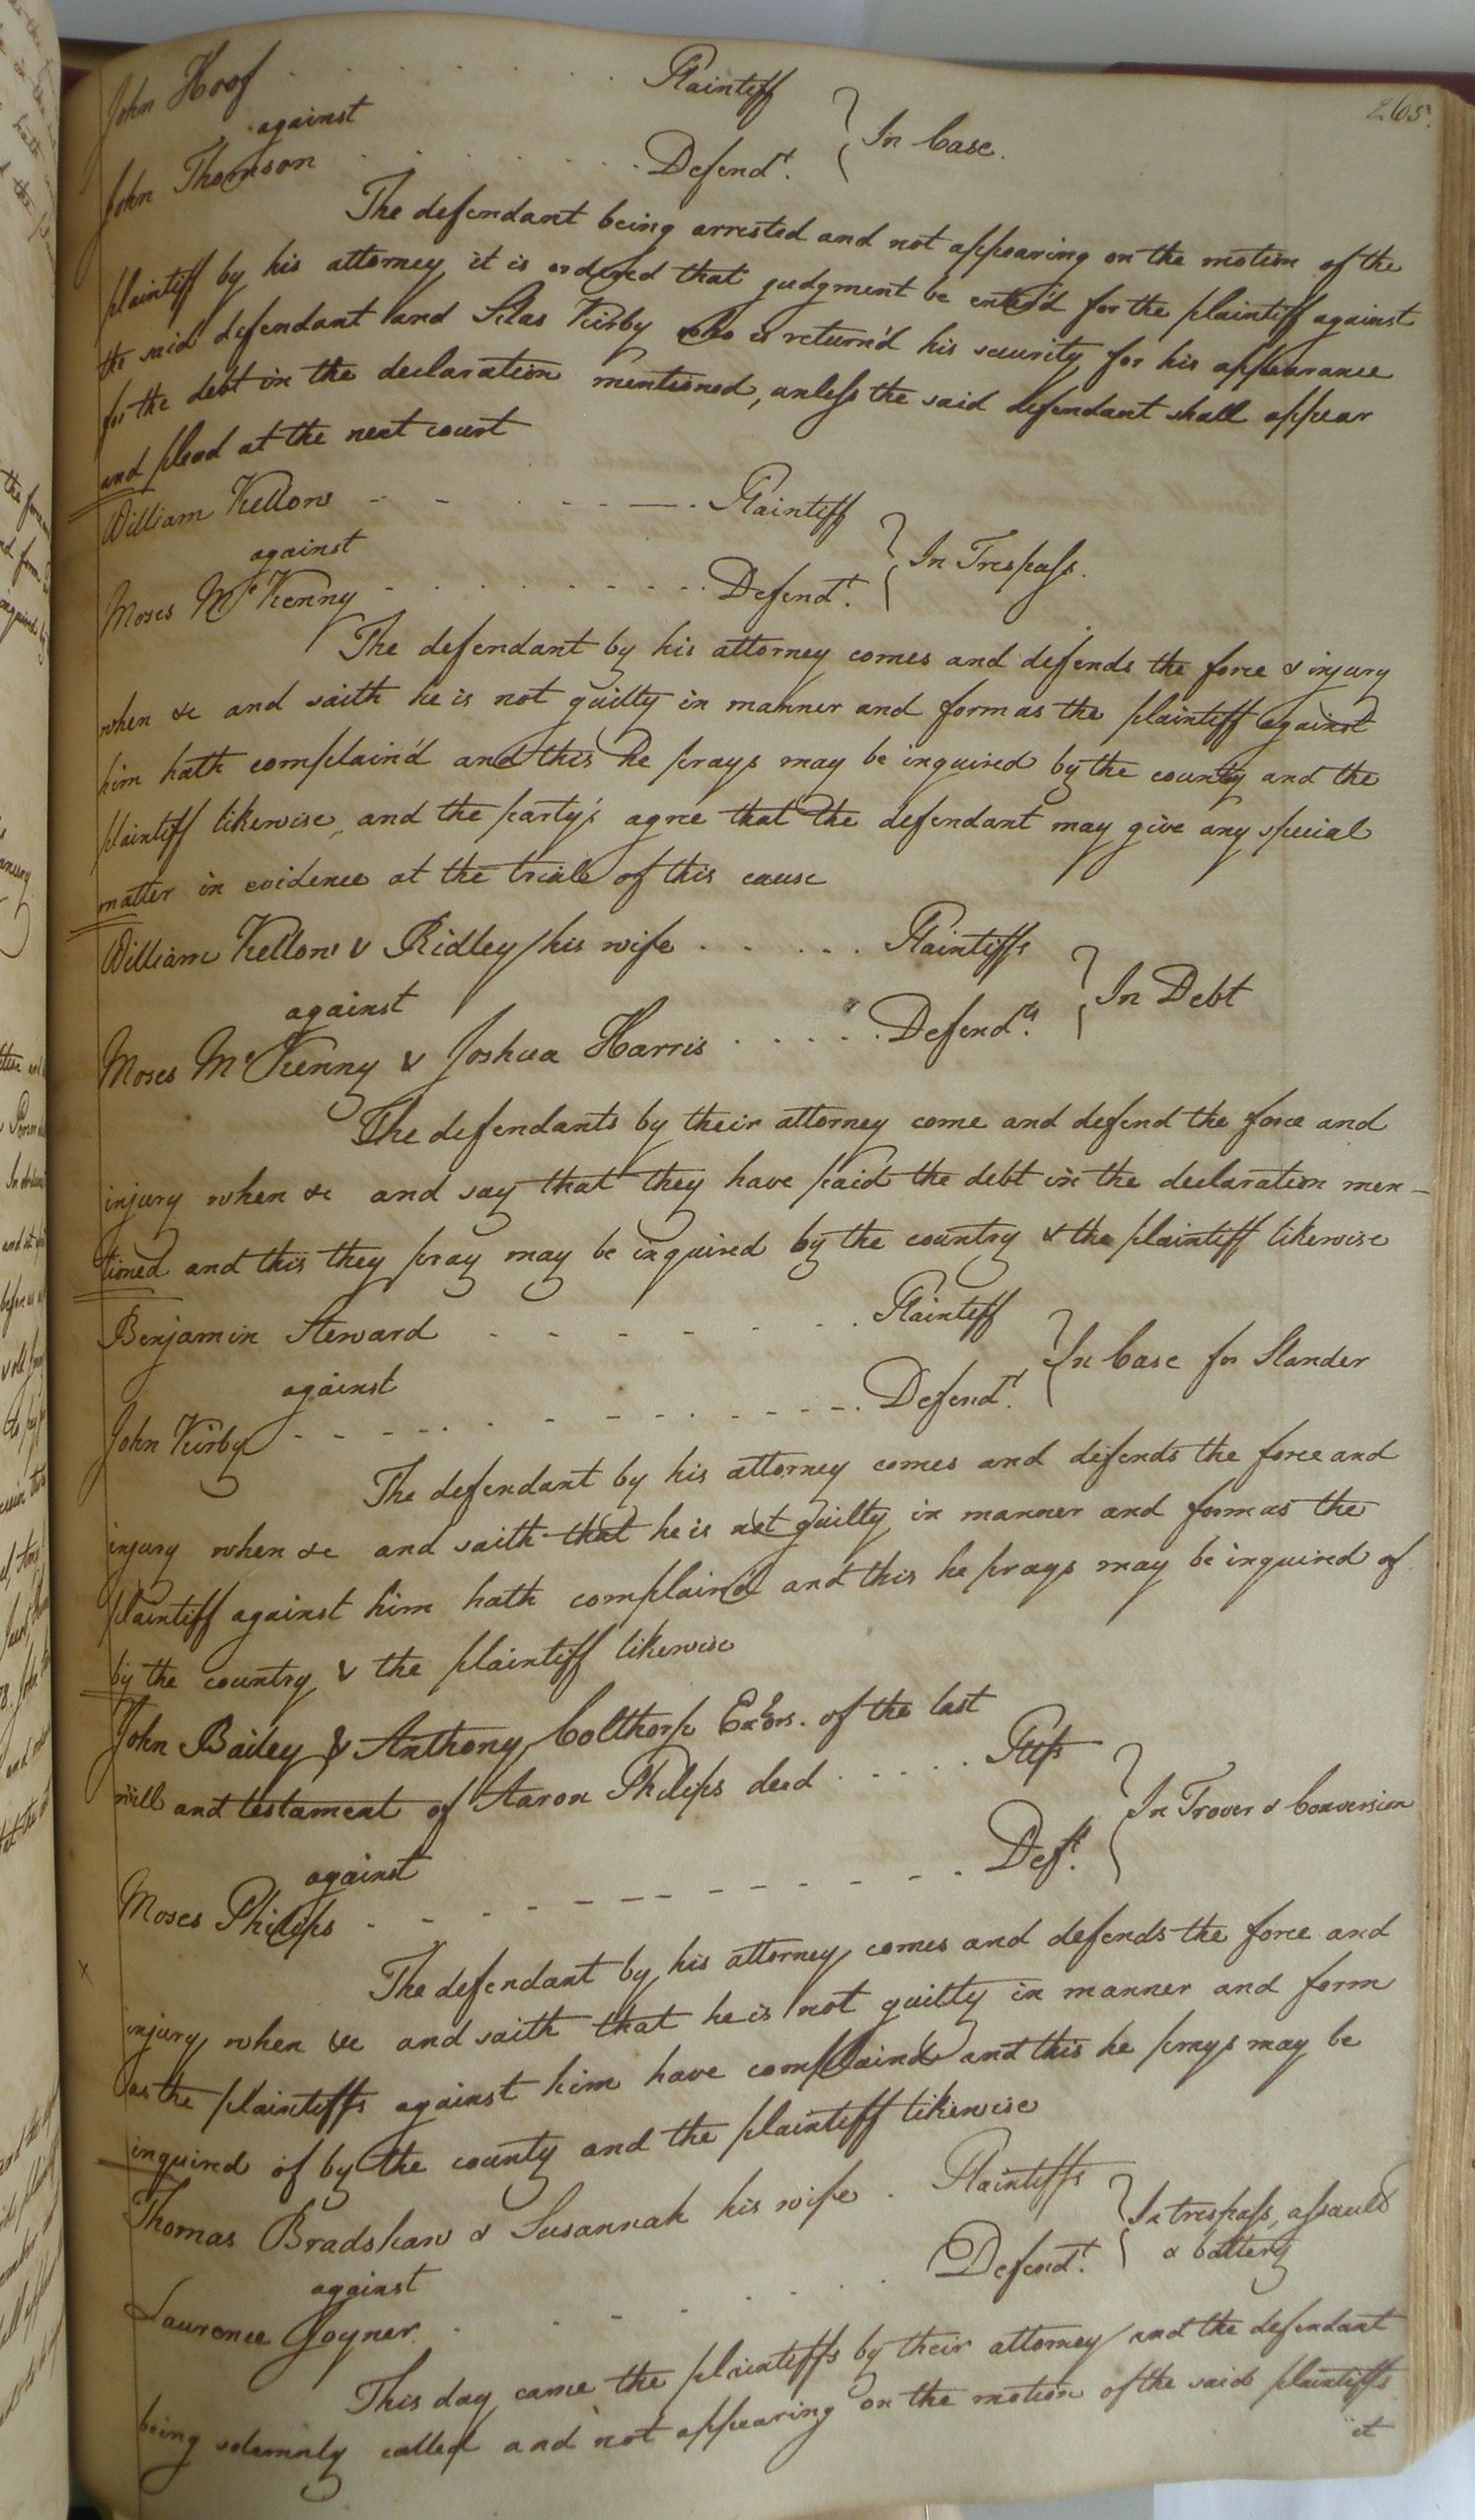 265.
John Hoof . . . . . . . Plaintiff
against } In Case.
John Thomson . . . . . . . Defend.t
The defendant being arrested and not appearing on the motion of the
plaintiff by his attorney it is ordered that judgment be enter'd for the plaintiff against
the said defendant and Silas Kirby who is return'd his security for his appearance
for the debt in the declaration mentioned, unless the said defendant shall appear
and plead at the next court
William Kellow - - - - - - Plaintiff
against } In Trespass.
Moses McKenny - - - - - - - Defend.t
The defendant by his attorney comes and defends the force & injury
when &c and saith he is not guilty in manner and form as the plaintiff against
him hath complain'd and this he prays may be inquired by the county and the
plaintiff likewise, and the party's agree that the defendant may give any special
matter in evidence at the trial of this cause
William Kellow & Ridley his wife . . . . . Plaintiffs
against } In Debt
Moses McKenny & Joshua Harris . . . . . . Defend.ts
The defendants by their attorney come and defend the force and
injury when &c and say that they have paid the debt in the declaration men-
tioned and this they pray may be inquired by the country & the plaintiff likewise
Benjamin Steward - - - - - - - Plaintiff
against } In Case for Slander
John Kirby - - - - - - - - - - - Defend.t
The defendant by his attorney comes and defends the force and
injury when &c and saith that he is not guilty in manner and form as the
plaintiff against him hath complain'd and this he prays may be inquired of
by the country & the plaintiff likewise
John Bailey & Anthony Colthorp Exors. of the last
will and testament of Aaron Philips decd . . . . . Pltfs
against } In Trover & Conversion
Moses Philips - - - - - - - - - - - Deft.
The defendant by his attorney comes and defends the force and
x
injury when &c and saith that he is not guilty in manner and form
as the plaintiffs against him have complaind and this he prays may be
inquired of by the county and the plaintiff likewise
Thomas Bradshaw & Susannah his wife . Plaintiffs
against } In trespass, assault & battery
Laurence Joyner . - - - - . . Defend.t
This day came the plaintiffs by their attorney and the defendant
being solemnly called and not appearing on the motion of the said plaintiffs
it